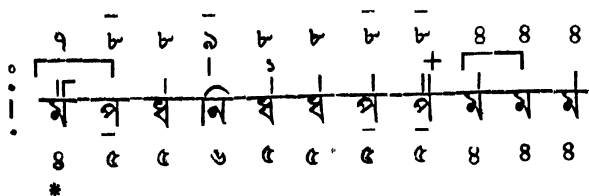 ৭ ৮ ৮ ৯ ৮ ৮ ৮ ৮ ৪ ৪ ৪
+
ম প ধ ন ধ ধ প প ম ম ম
৪ ৫ ৫ ৬ ৫ ৫ ৫ ৫ ৪ ৪ ৪
*